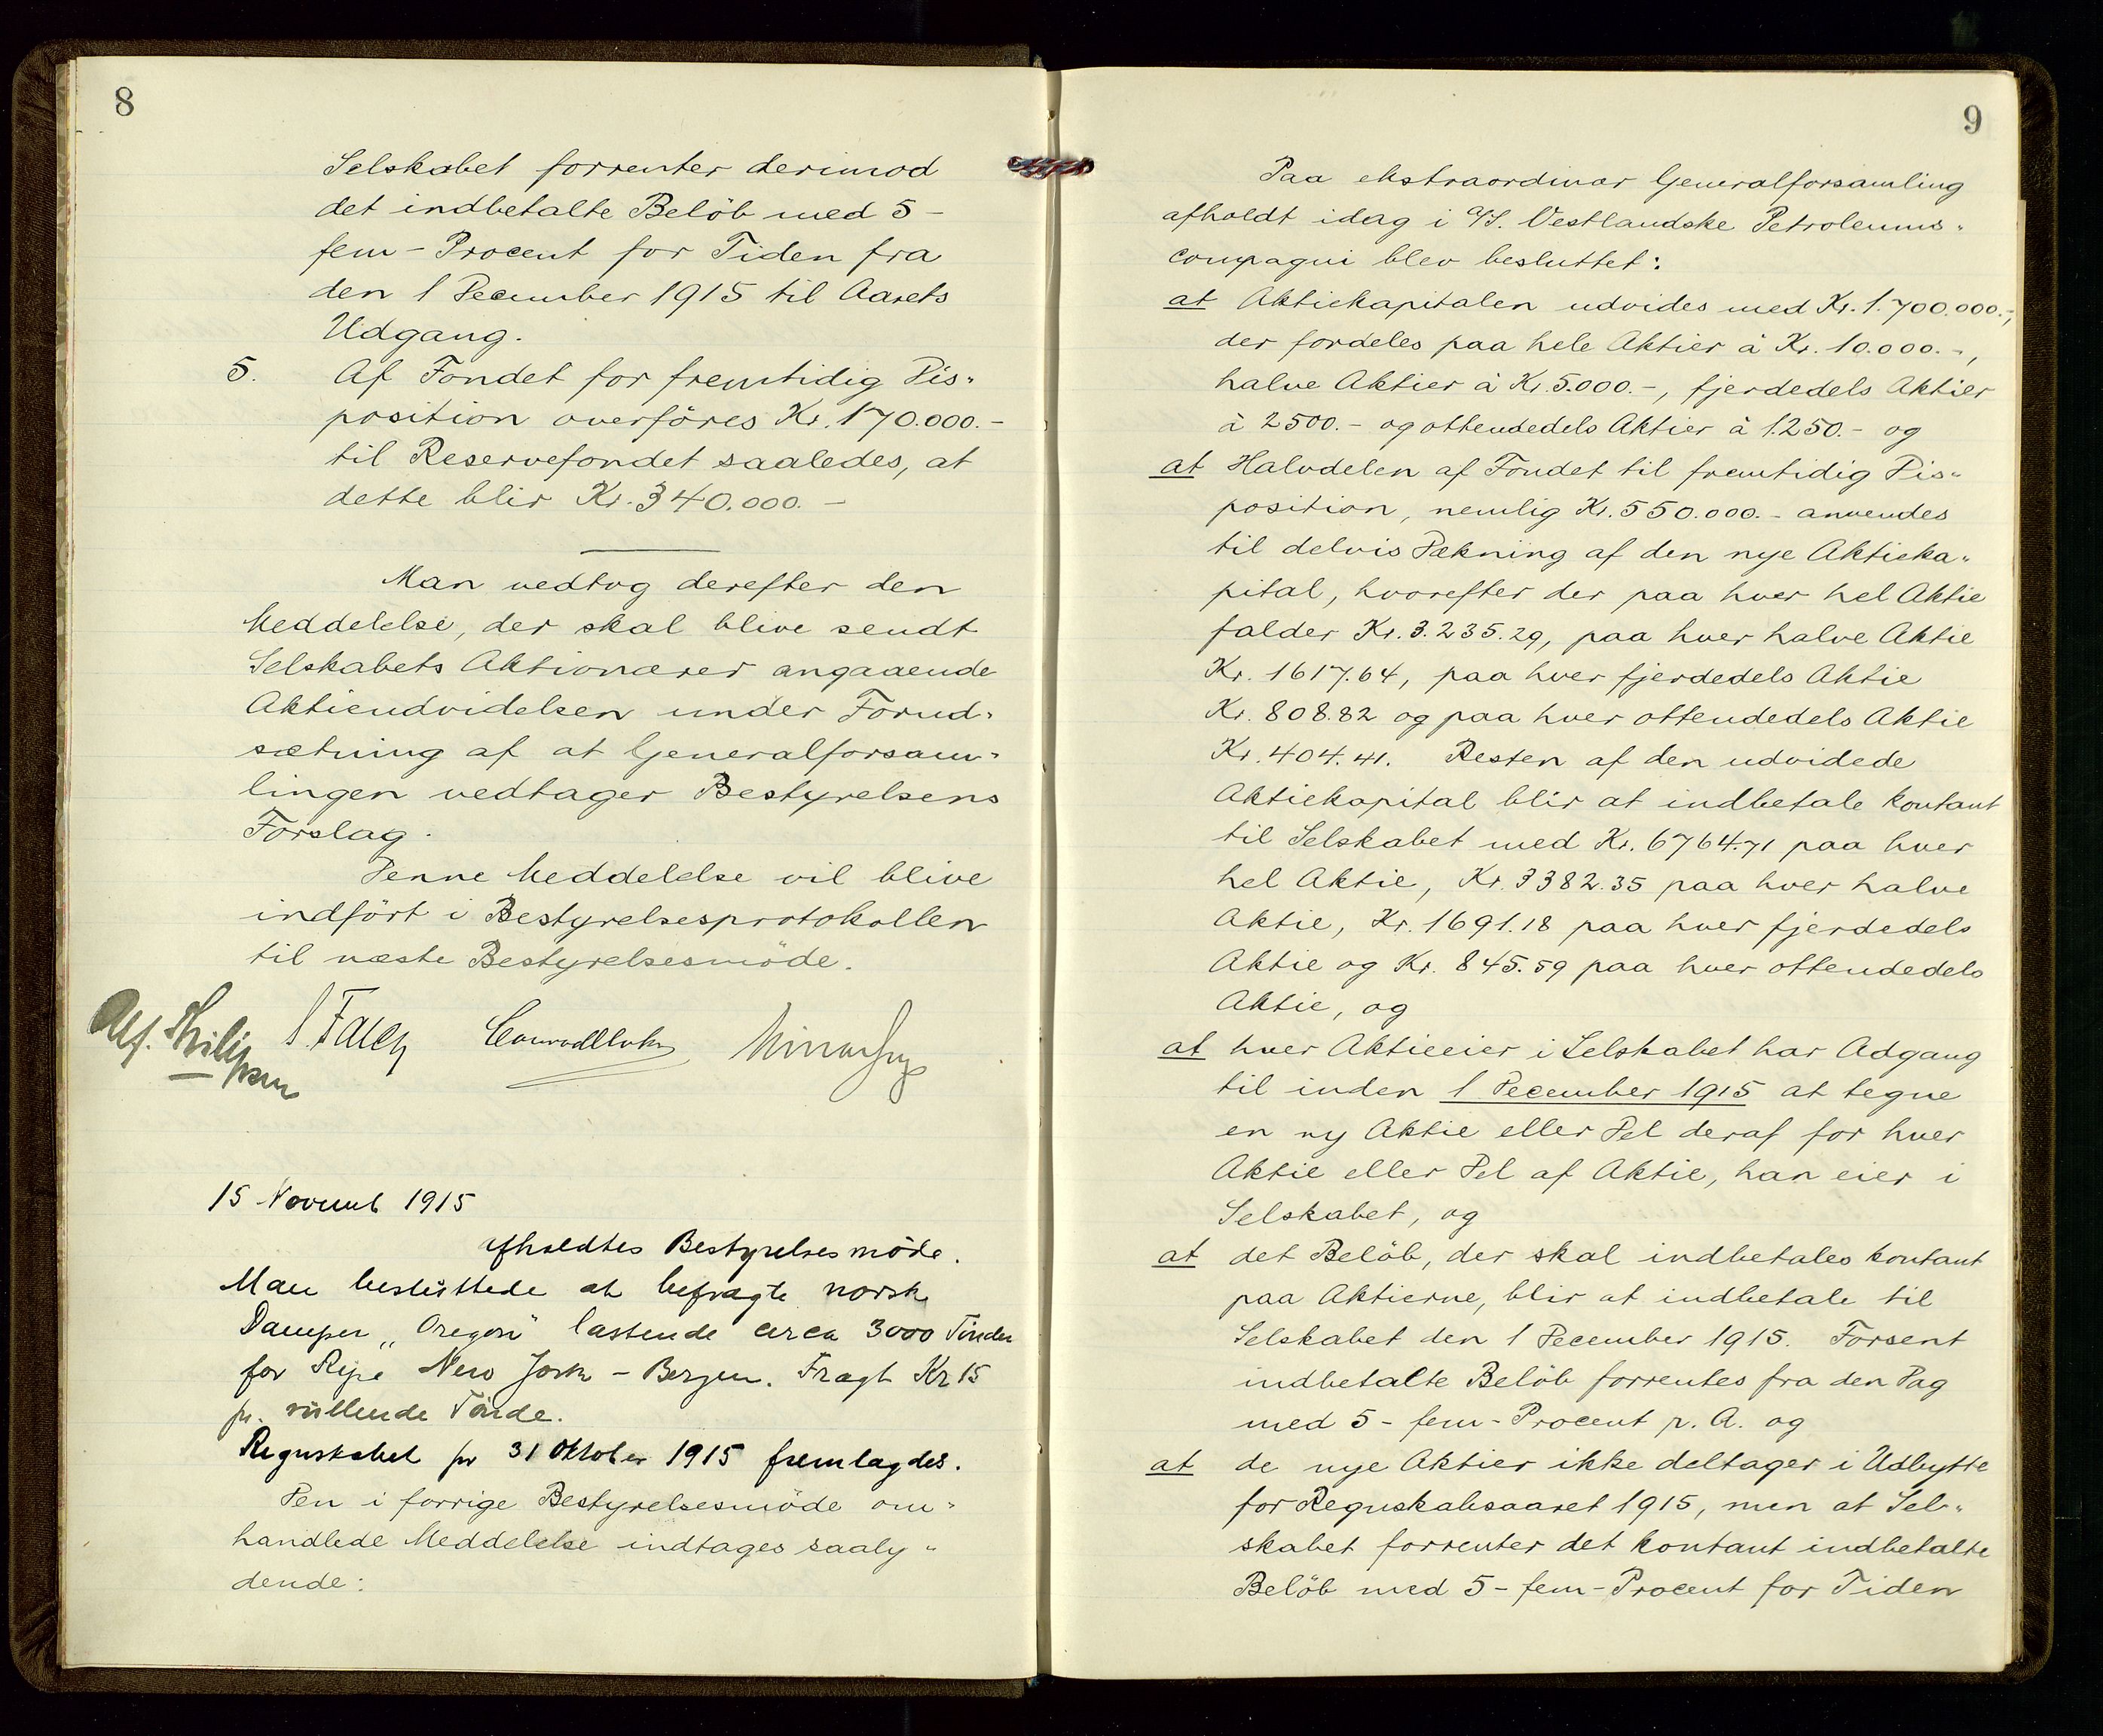 8
Selskabet forrenter derimod
det indbetalte Belöb med 5 -
fem - Procent for Tiden fra
den 1 December 1915 til Aarets
Udgang.
5. Af Fondet for fremtidig Dis-
position overföres Kr. 170.000.-
til Reservefondet saaledes, at
dette blir Kr. 340.000.-
Man vedtog derefter den
Meddelelse, der skal blive sendt
Selskabets Aktionærer angaaende
Aktieudvidelsen under Forud-
sætning af at Generalforsam-
lingen vedtager Bestyrelsens
Forslag.
Denne Meddelelse vil blive
indfört i Bestyrelsesprotokollen
til næste Bestyrelsesmöde.
15 Novemb 1915
afholdtes Bestyrelsesmöde.
Man besluttede at befragte norsk
Damper „Oregon" lastende circa 3000 Tönder
for Rejse New York - Bergen. Fragt Kr 15
pr. rullende Tönde.
Regnskabet pr 31 Oktober 1915 fremlagdes.
Den i forrige Bestyrelsesmöde om-
handlede Meddelelse indtages saaly-
dende:
9
Paa ekstraordinær Generalforsamling
afholdt idag i A/S. Vestlandske Petroleums-
compagni blev besluttet:
at Aktiekapitalen udvides med Kr. 1.700.000.-,
der fordeles paa hele Aktier à Kr. 10.000.-,
halve Aktier à Kr. 5.000.-, fjerdedels Aktier
à 2500.- og ottendedels Aktier à 1.250.- og
at Halvdelen af Fondet til fremtidig Dis-
position, nemlig Kr. 550.000.- anvendes
til delvis Dækning af den nye Aktieka-
pital, hvorefter der paa hver hel Aktie
falder Kr. 3.235.29, paa hver halve Aktie
Kr. 1617.64, paa hver fjerdedels Aktie
Kr. 808.82 og paa hver ottendedels Aktie
Kr. 404.41. Resten af den udvidede
Aktiekapital blir at indbetale kontant
til Selskabet med Kr. 6764.71 paa hver
hel Aktie, Kr. 3382.35 paa hver halve
Aktie, Kr. 1691.18 paa hver fjerdedels
Aktie og Kr. 845.59 paa hver ottendedels
Aktie, og
at hver Aktieeier i Selskabet har Adgang
til inden 1 December 1915 at tegne
en ny Aktie eller Del deraf for hver
Aktie eller Del af Aktie, han eier i
Selskabet, og
at det Belöb, der skal indbetales kontant
paa Aktierne, blir at indbetale til
Selskabet den 1 December 1915. Forsent
indbetalte Belöb forrentes fra den Dag
med 5 - fem - Procent p. A. og
at de nye Aktier ikke deltager i Udbytte
for Regnskabsaaret 1915, men at Sel-
skabet forrenter det kontant indbetalte
Belöb med 5 - fem - Procent for Tiden